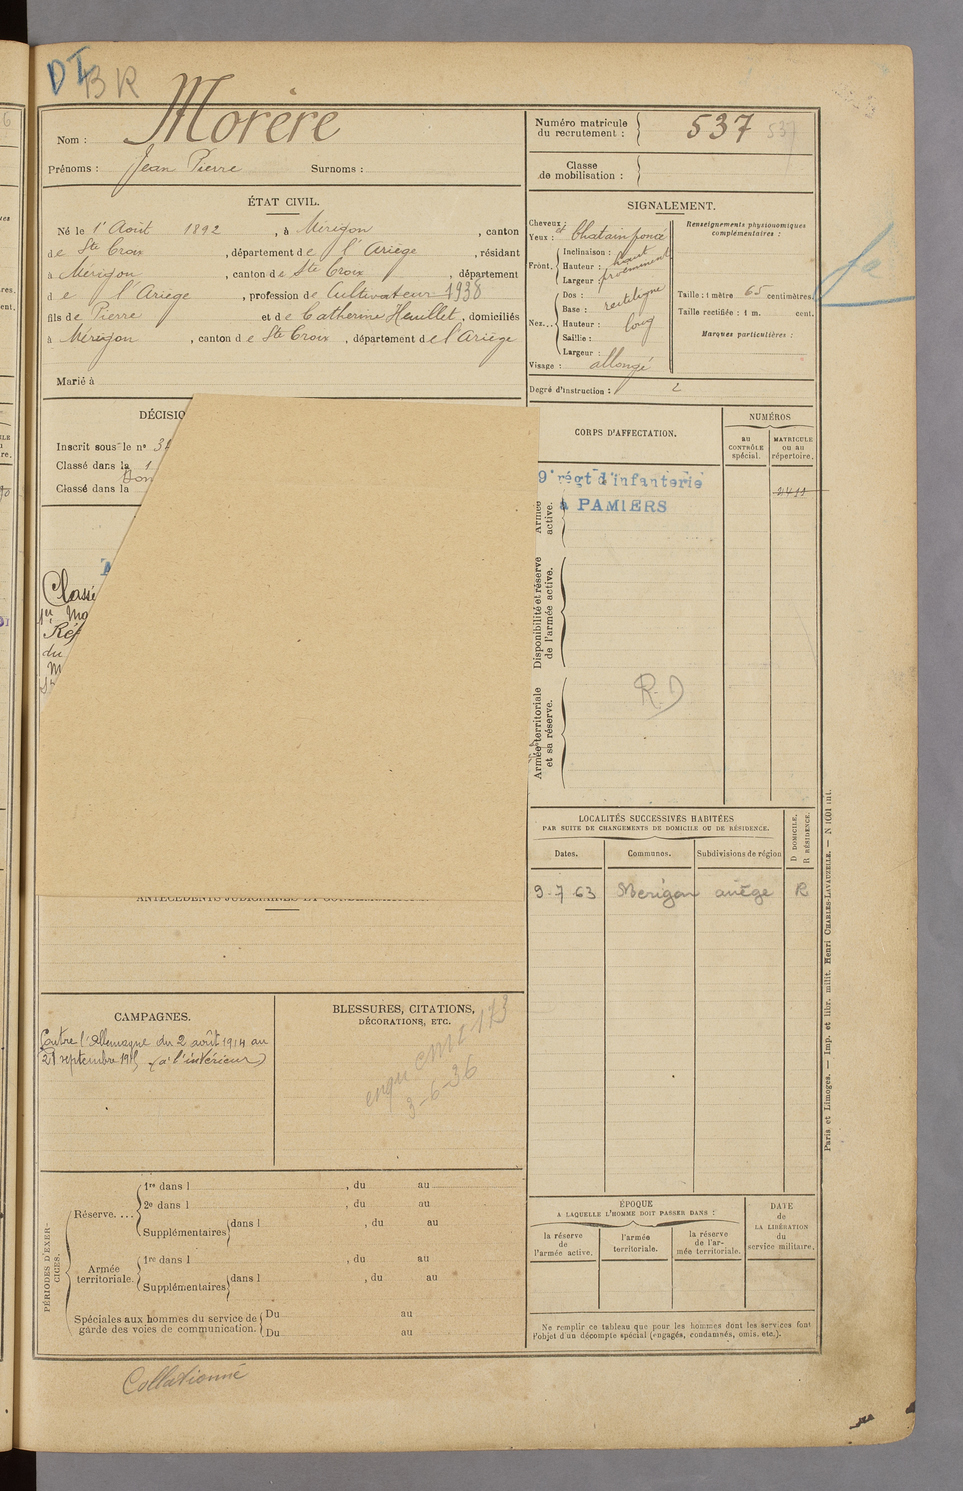 DI BR
Nom : Morère
Prénoms : Jean Pierre Surnoms :
Numéro matricule du recrutement : 537 537
Classe de mobilisation :
ÉTAT CIVIL.
Né le 1r Août 1892, à Mérigon, canton
de Ste Croix, département de l'Ariège, résidant
à Mérigon, canton de Ste Croix, département
de l'Ariège, profession de Cultivateur 1938
fils de Pierre et de Catherine Heuillet, domiciliés
à Mérigon, canton de Ste Croix, département de l'Ariège
Marié à
SIGNALEMENT.
Cheveux : et
Yeux : Chatain foncé
Front. Inclinaison :
Hauteur : haut
Largeur : proéminent
Nez... Dos :
Base : rectiligne
Hauteur : long
Saillie :
Largeur :
Visage : allongé
Renseignements physionomiques
complémentaires :
Taille : 1 mètre 65 centimètres
Taille rectifiée : 1 m. cent.
Marques particulières :
Degré d'instruction : 2
DÉCISIO
Inscrit sous le no 32
Classé dans la 1
Bon
Classé dans la
Classé
Réf
du
CORPS D'AFFECTATION.
NUMÉROS
au CONTRÔLE spécial.
MATRICULE ou au répertoire.
Armée active.
9e régt d'infanterie
à PAMIERS
Disponibilité et réserve de l'armée active.
Armée territoriale et sa réserve.
R.D
LOCALITÉS SUCCESSIVES HABITÉES
PAR SUITE DE CHANGEMENTS DE DOMICILE OU DE RÉSIDENCE.
Dates. Communes. Subdivisions de région
D DOMICILE. R RÉSIDENCE.
9-7-63 Merigon ariège R
ANTÉCÉDENTS JUDICIAIRES ET CONDAMNATIONS
CAMPAGNES.
Contre l'Allemagne du 2 août 1914 au
21 septembre 1915 (à l'intérieur)
BLESSURES, CITATIONS,
DÉCORATIONS, ETC.
CM 173
3-6-36
PÉRIODES D'EXERCICES.
Réserve....
1re dans l , du au
2e dans l , du au
Supplémentaires dans l , du au
Armée territoriale.
1re dans l , du au
Supplémentaires dans l , du au
Spéciales aux hommes du service de
garde des voies de communication.
Du au
Du au
ÉPOQUE
A LAQUELLE L'HOMME DOIT PASSER DANS :
la réserve de l'armée active.
l'armée territoriale.
la réserve de l'armée territoriale.
DATE de LA LIBÉRATION du service militaire.
Ne remplir ce tableau que pour les hommes dont les services font
l'objet d'un décompte spécial (engagés, condamnés, omis. etc.).
Paris et Limoges. — Imp. et libr. milit. Henri CHARLES-LAVAUZELLE. —
Collationné